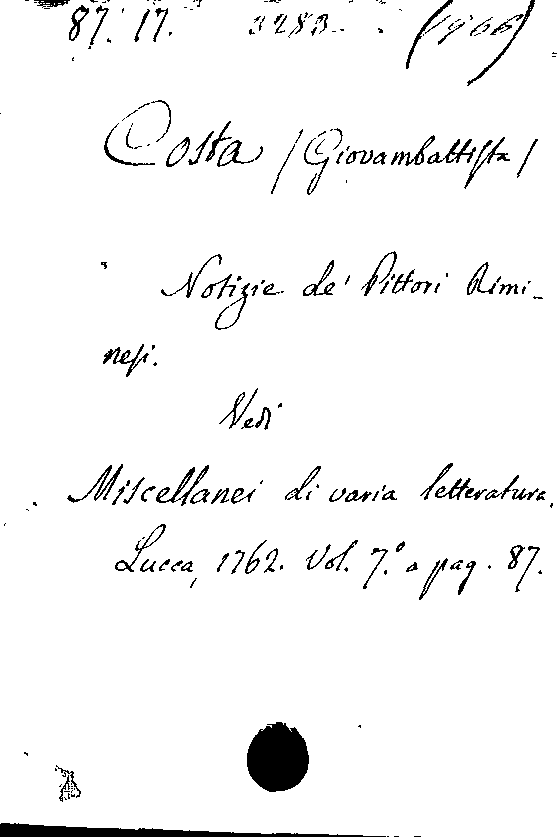 87. 17. 3283 (1966)
Costa / Giovambattista /
Notizie de' Pittori Rimi-
nesi.
Vedi
Miscellanei di varia letteratura.
Lucca, 1762. Vol. 7.º a pag. 87.